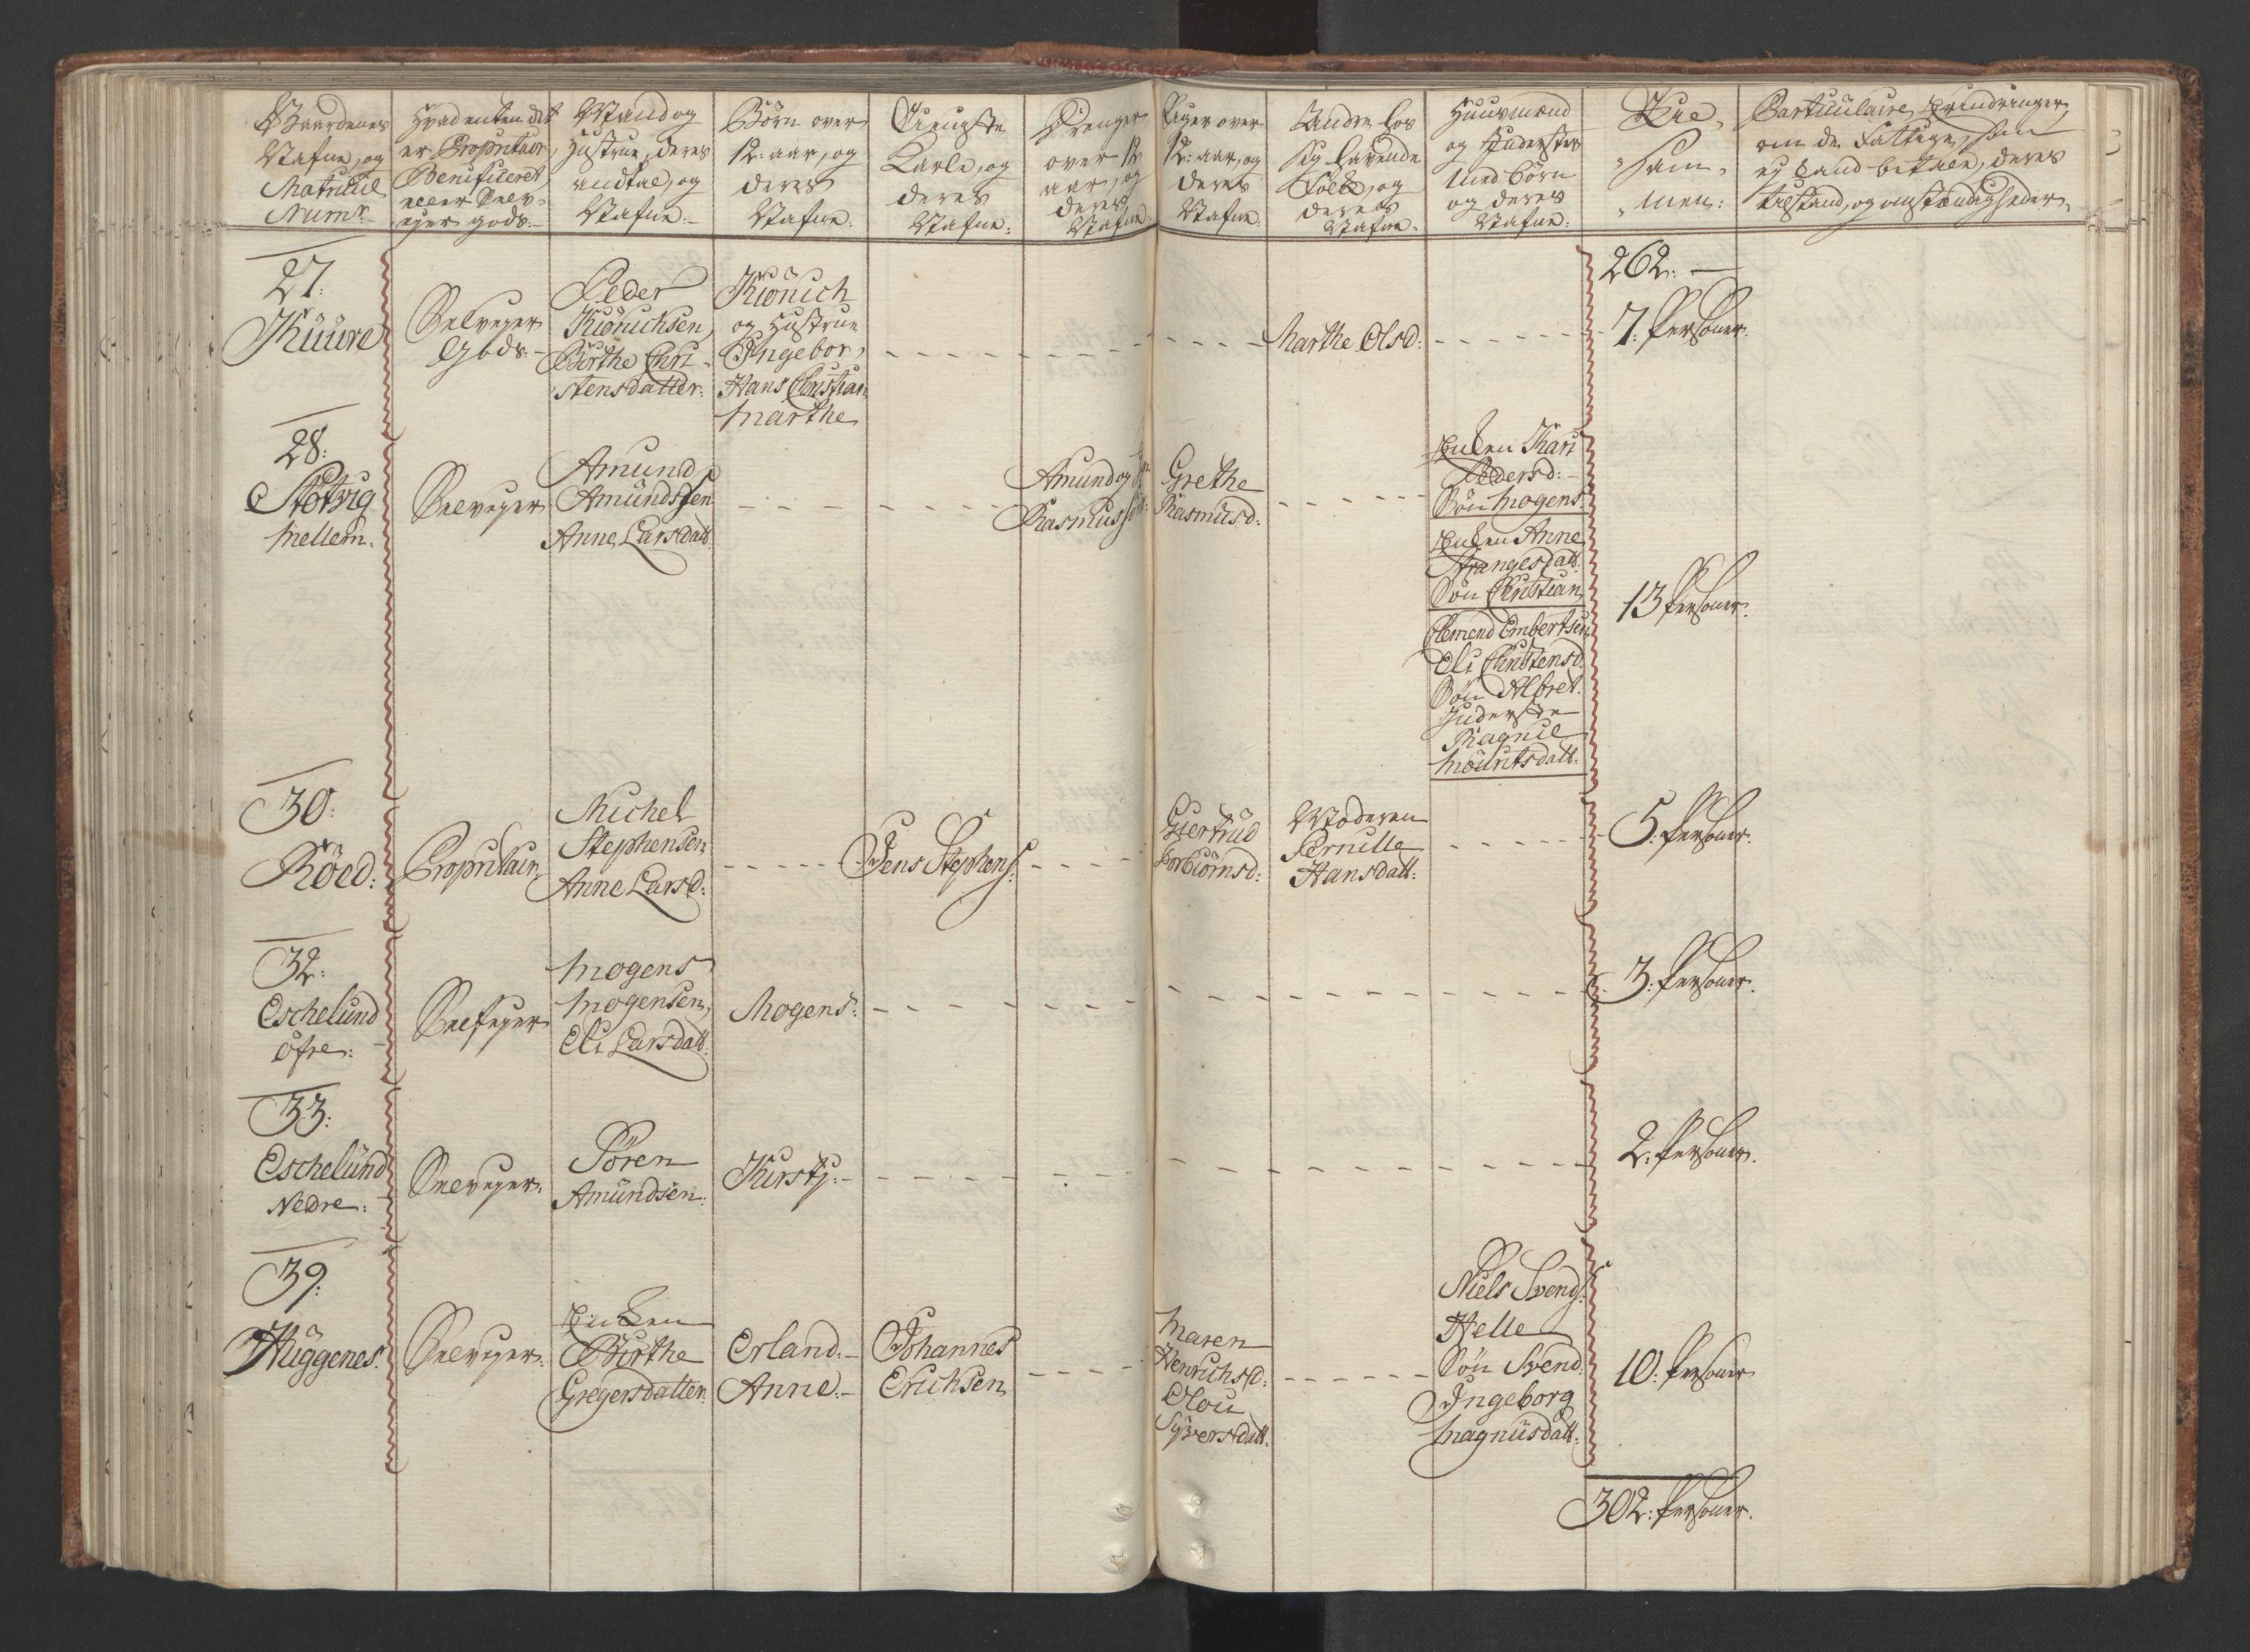 Gaardenes
Nafne, og
Matricul
Numr.
Hvad enten det
er Proprietair,
Benificeret,
eller Selv-
eyer gods.
Mand og
Hustrue, deres
andtal, og
Nafne.
Børn over
12: aar, og
deres
Nafne.
Tieneste
Karle, og
deres
Nafne:
Drenger
over 12
aar, og
deres
Nafne.
Piger over
12: aar, og
deres
Nafne.
Andre los
sig havende
Folk, og
deres
Nafne.
Huusmænd
og Inderster
med børn
og deres
Nafne:
Til-
sam-
men:
Particulaire Erindringer,
om de Fattige, som
ey kand betale, deres
tilstand, og omstændigheder.
262:
27:
Kuure
Selveyer
Gods.
Peder
Kiønichsen,
Birthe Chri-
stensdatter.
Kiönich
og Hustrue
Ingebor,
Hans Christian
Marthe
Marthe Olsd:
7: Personer.
28:
Støtvig
Mellem.
Selveyer
Amund
Amundssen
Anne Larsdatt.
Amund og
Rasmus
Grethe
Rasmusd:
Enken Kari
Pedersd:
Søn Mogens
Enken Anne
Søn Christian
Clemend Embertsen
Eli Christensd.
Søn Albret.
Inderste
Ragnil
Mouritsdatt.
13 Personer.
30:
Röed:
Propritair
Michel
Stephensen
Anne Larsd:
Jens Stephens:
Giertrud
Torbiörnsd:
Moderen
Pernille
Hansdatt:
5: Personer.
32:
Eschelund
Ofre:
Selfeyer
Mogens
Mogensen,
Eli Larsdatt:
Mogens:
3: Personer.
33:
Eschelünd
Nedre:
Selveyer:
Sören
Amündsen:
Kirsty:
2: Personer.
39:
Huggenes:
Selveyer:
Enken
Birthe
Gregersdatter:
Erland.
Anne.
Johannes
Erichsen
Maren
Henrichsd:
Olou
Syversdatt.
Niels Svends:
Helle
Søn Svend
Ingeborg
Magnusdatt:
10: Personer
302: Personer.